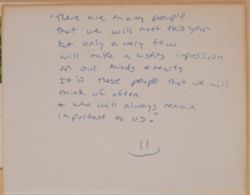 "There are many people
that we will meet this year
but only a very few
will make a lasting impression
on our minds & hearts
It is these people that we will
think of often
& who will always remain
important to us."